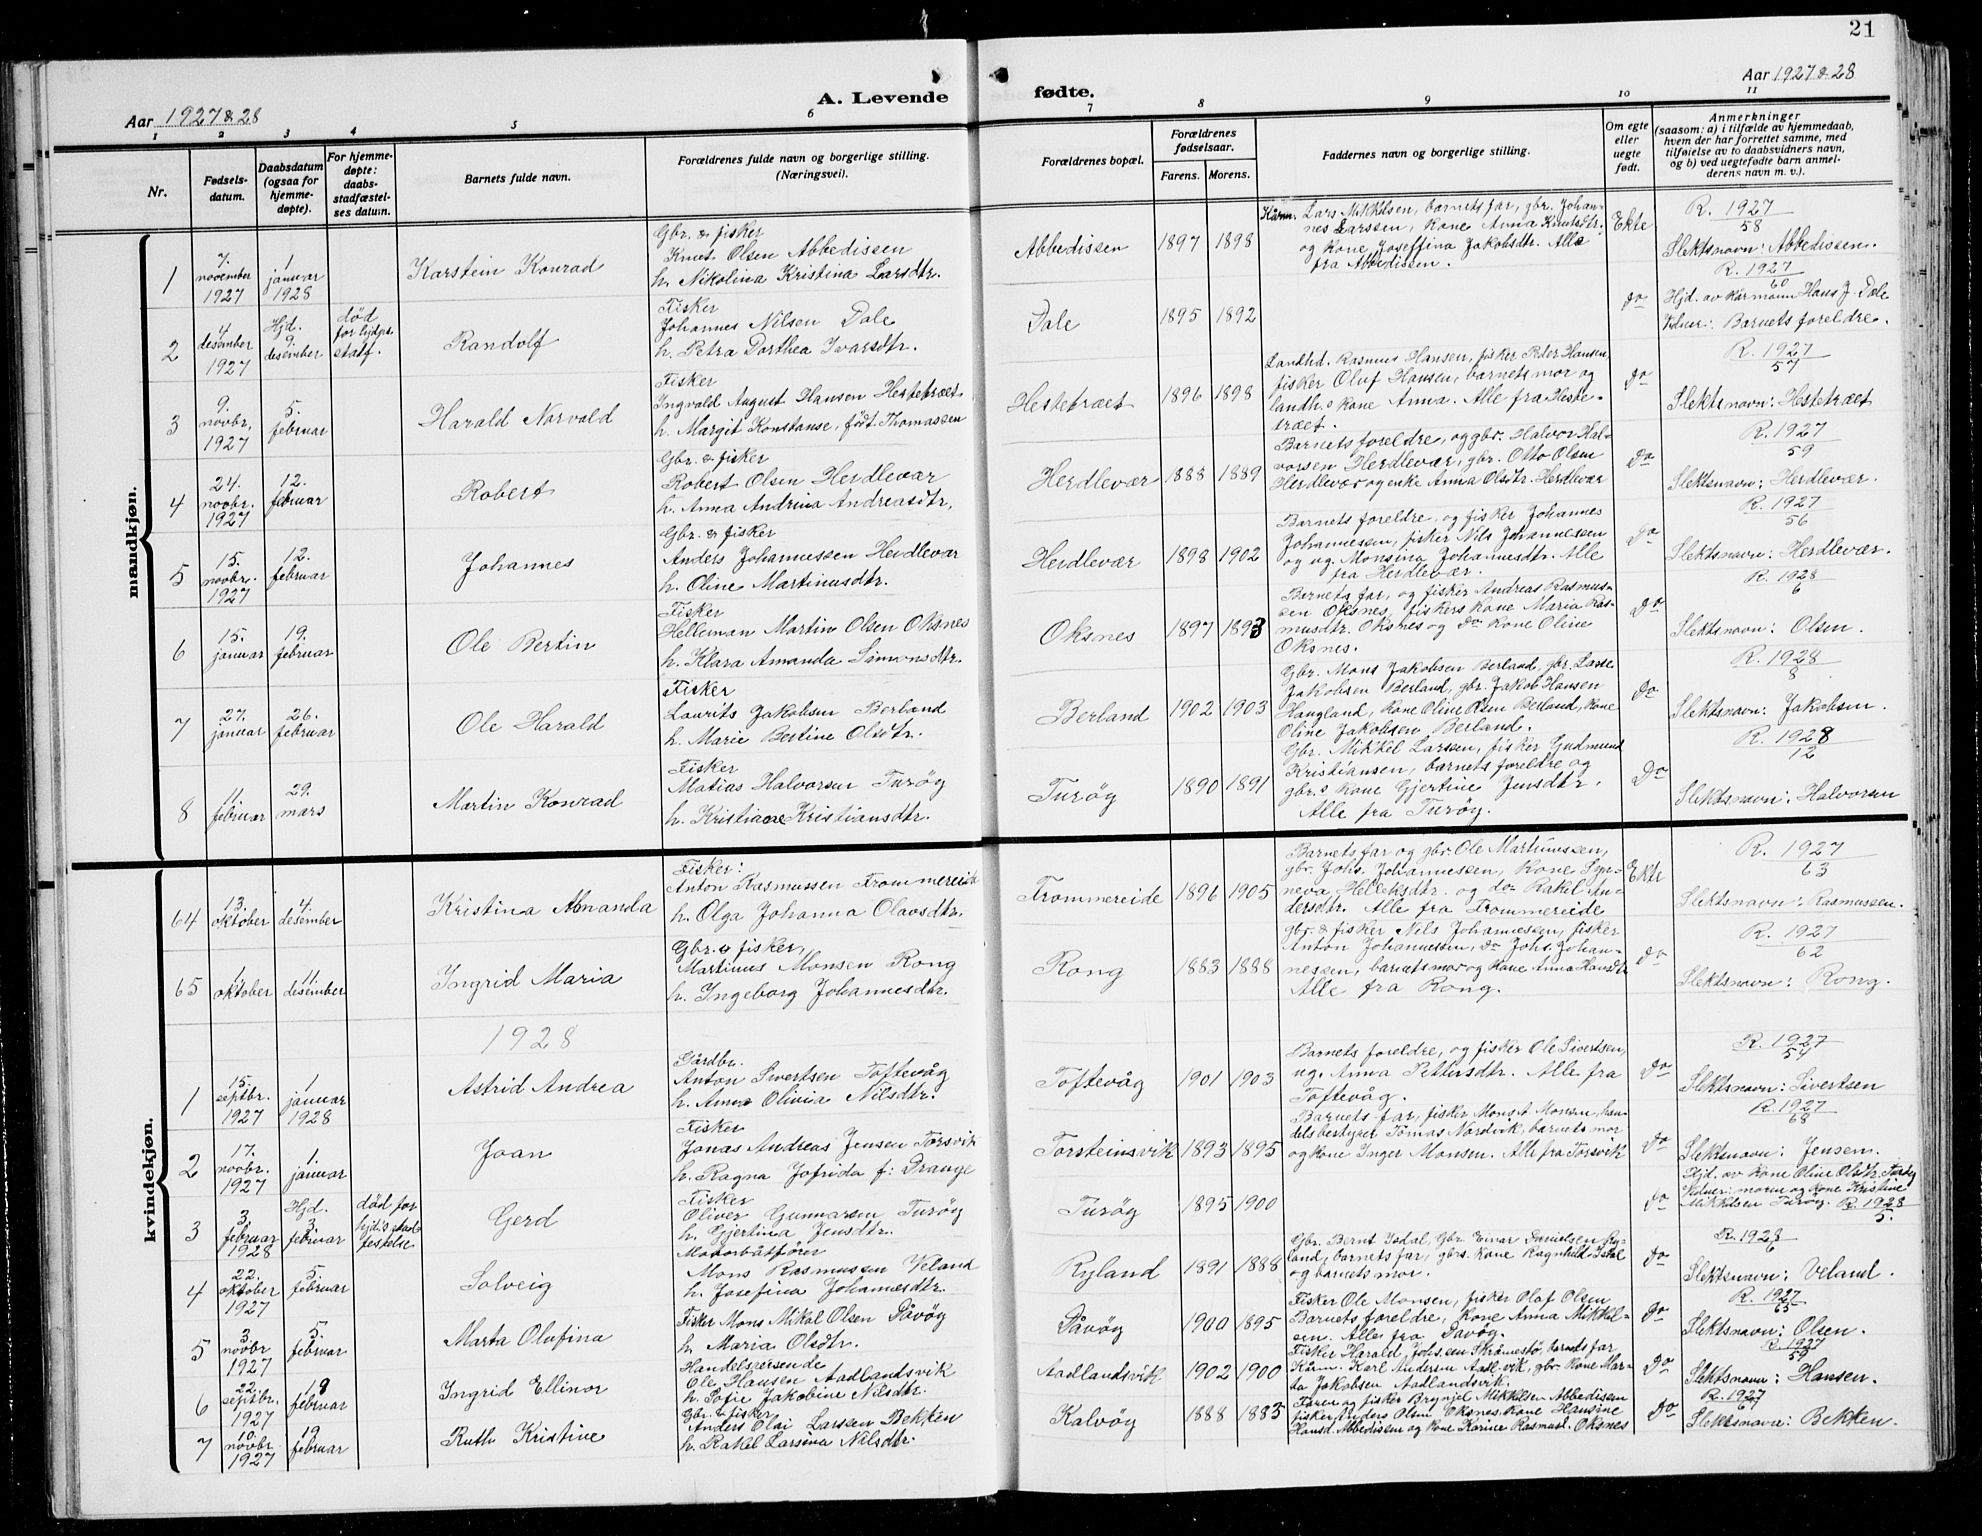 21
Aar 1927 & 28
A. Levende
fødte.
Aar 1927 & 28
1 2 3 4 5 6 7 8 9 10 11
Nr.
Fødsels-
datum.
Daabsdatum
(ogsaa for
hjemme-
døpte).
For hjemme-
døpte:
daabs-
stadfæstel-
ses datum.
Barnets fulde navn.
Forældrenes fulde navn og borgerlige stilling.
(Næringsvei).
Forældrenes bopæl.
Forældrenes
fødselsaar.
Farens. Morens.
Faddernes navn og borgerlige stilling.
Om egte
eller
uegte
født.
Anmerkninger
(saasom: a) i tilfælde av hjemmedaab,
hvem der har forrettet samme, med
tilføielse av to daabsvidners navn,
og b) ved uegtefødte barn anmel-
derens navn m. v.).
mandkjøn.
1
7.
november
1927
1
januar
1928
Karstein Konrad
Gbr. & fisker
Knut Olsen Abbedissen
h. Nikolina Kristina Larsdtr.
Abbedissen
1897 1898
Kårm. Lars Mikkelsen, barnets far, gbr. Johan-
nes Larssen, kone Anna Knutsdtr.
og kone Joseffina Jakobsdtr. Alle
fra Abbedissen.
Ekte
R. 1927
58
Slektsnavn: Abbedissen.
2
4
desember
1927
Hjd.
9.
desember
død
for hjdps.
statf.
Randolf
Fisker
Johannes Nilsen Dale
h. Petra Dorthea Ivarsdtr.
Dale
1895 1892
do
R. 1927
60
Hjd. av Kårmann Hans J. Dale
Vidner: Barnets foreldre.
3
9.
novbr.
1927
5.
februar
Harald Norvald
Fisker
Ingvald August Hansen Hestetræet
h. Margit Konstanse, født Thomassen
Hestetræet
1896 1898
Landhd. Rasmus Hansen, fisker Peter Hansen,
fisker Oluf Hansen, barnets mor og
landh.s kone Anna. Alle fra Heste-
træet.
do
R. 1927
57
Slektsnavn: Hestetræet
4
24.
novbr.
1927
12.
februar
Robert
Gbr. & fisker
Robert Olsen Herdlevær
h. Anna Andrina Andreasdtr.
Herdlevær
1888 1889
Barnets foreldre, og gbr. Halvor Hal-
vorsen Herdlevær, gbr. Otto Olsen
Herdlevær og enke Anna Olsdtr. Herdlevær
do
R. 1927
59
Slektsnavn: Herdlevær.
5
15.
novbr.
1927
12.
februar
Johannes
Gbr. & fisker
Anders Johannessen Herdlevær
h. Oline Martinusdtr.
Herdlevær
1898 1902
Barnets foreldre, og fisker Johannes
Johannessen, fisker Nils Johannessen
og ug. Monsina Johannesdtr. Alle
fra Herdlevær.
do
R. 1927
56
Slektsnavn: Herdlevær.
6
15.
januar
19.
februar
Ole Bertin
Fisker
Helleman Martin Olsen Oksnes
h. Klara Amanda Simonsdtr.
Oksnes
1897 1893
Barnets far, og fisker Andreas Rasmus-
sen Oksnes, fiskers kone Maria Ras-
musdtr. Oksnes og do kone Oline
Oksnes.
Do
R. 1928
6
Slektsnavn: Olsen.
7
27.
januar
26.
februar
Ole Harald
Fisker
Laurits Jakobsen Berland
h. Marie Bertine Olsdtr.
Berland
1902 1903
Gbr. Mons Jakobsen Berland, gbr. Lasse
Jakobsen Berland, gbr. Jakob Hansen
Haugland, kone Oline Olsen Berland, kone
Oline Jakobsen Berland.
Do
R. 1928
8
Slektsnavn: Jakobsen.
8
11.
februar
29.
mars
Martin Konrad
Fisker
Matias Halvorsen Turøy
h. Kristiane Kristiansdtr.
Turøy
1890 1891
Gbr. Mikkel Larssen, fisker Gudmund
Kristiansen, barnets foreldre og
gbr.s kone Gjertine Jensdtr.
Alle fra Turøy.
Do
R. 1928
12
Slektsnavn: Halvorsen
kvindekjøn.
64
13.
oktober
4.
desember
Kristina Amanda
Fisker:
Anton Rasmussen Trommereide
h. Olga Johanna Olavsdtr.
Trommereide
1896 1905
Barnets far og gbr. Ole Martinussen,
gbr. Johs. Johannessen, kone Syn-
neva Helleksdtr. og do Rakel An-
dersdtr. Alle fra Trommereide
Ekte
R. 1927
63
Slektsnavn: Rasmussen.
65
1
oktober
11.
desember
Ingrid Maria
Gbr. & fisker,
Martinus Monsen Rong
h. Ingeborg Johannesdtr.
Rong
1883 1888
gbr. & fisker Nils Johannessen, fisker
Anton Johannessen, do Johs. Johan-
nessen, barnets mor og kone Anna Hansdtr
Alle fra Rong.
do
R. 1927
62
Slektsnavn: Rong.
1928
1
15.
septbr.
1927
1
januar
1928
Astrid Andrea
Gårdbr.
Anton Sivertsen Toftevåg
h. Anna Olivia Nilsdtr.
Toftevåg
1901 1903
Barnets foreldre, og fisker Ole Sivertsen,
ug. Anna Pettersdtr. Alle fra
Toftevåg.
Do
R. 1927
54
Slektsnavn: Sivertsen
2
17.
novbr.
1927
1.
januar
Joan
Fisker
Jonas Andreas Jensen Torsvik
h. Ragna Jofrida f: Drange
Torsteinsvik
1893 1895
Barnets far, fisker Mons A. Monsen, han-
delsbestyrer Tomas Nordvik, barnets mor
og kone Inger Monsen. Alle fra Torsvik
Do
R. 1927
68
Slektsnavn: Jensen.
3
3.
februar
1928
Hjd.
3.
februar
død for
hjd's stad-
festelse
Gerd
Fisker
Oliver Gunnarsen Turøy
h. Gjertina Jensdtr.
Turøy
1895 1900
do
Hjd. av kone Oline Olsdtr. Turøy
Vidner: moren og kone Kristine
Mikkelsen Turøy. R. 1928
5.
4
22.
oktober
1927
5.
februar
Solveig
Motorbåtfører
Mons Rasmussen Veland
h. Josefina Johannesdtr.
Ryland
1891 1888
Gbr. Bernt Isdal, Gbr. Einar Danielsen Ry-
land, barnets far, gbrs. kone Ragnhild Isdal
og barnets mor.
Do
R. 1928
6
Slektsnavn: Veland.
5
3.
novbr
1927
5.
februar
Marta Olufina
Fisker Mons Mikal Olsen Påvøy
h. Maria Olsdtr.
Påvøy
1900 1895
Fisker Ole Monsen, fisker Olaf Olsen
Barnets foreldre, kone Anna Mikkel-
sen. Alle fra Påvøy.
Do
R. 1927
65
Slektsnavn: Olsen.
6
22.
septbr.
1927
19
februar
Ingrid Ellinor
Handelsreisende
Ole Hansen Aadlandsvik
h. Sofie Jakobine Nilsdtr.
Aadlandsvik
1902 1900
Fisker Harald Johsen Skrånestø, barnets far
Kårm. Karl Andersen Aadl.vik, gbr. kone Mar-
ta Jakobsen Aadlandsvik.
Do
R. 1927
59
Slektsnavn: Hansen.
7
10.
novbr.
1927
19
februar
Ruth Kristine
Gbr. & fisker
Anders Olai Larssen Bekken
h. Rakel Larsina Nilsdtr.
Kalvøy
1888 1885
Faren og fisker Brynjel Mikkelsen Abbedissen
fisker Anders Olsen Oksnes, kone Hansine
Hansd. Abbedissen og kone Karine Rasmusd. Oksnes
Do
R. 1927
67
Slektsnavn: Bekken.